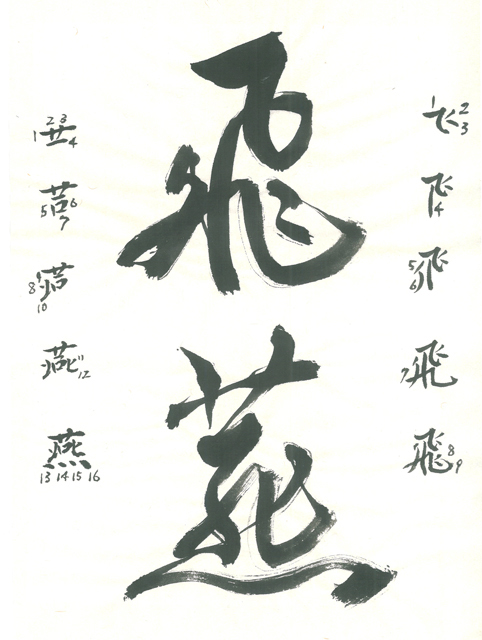 飛
燕
1 2 3
4
5 6
7
飛
8 9
飛
1 2 3 4
5 6
7
8
10
12
燕
13 14 15 16